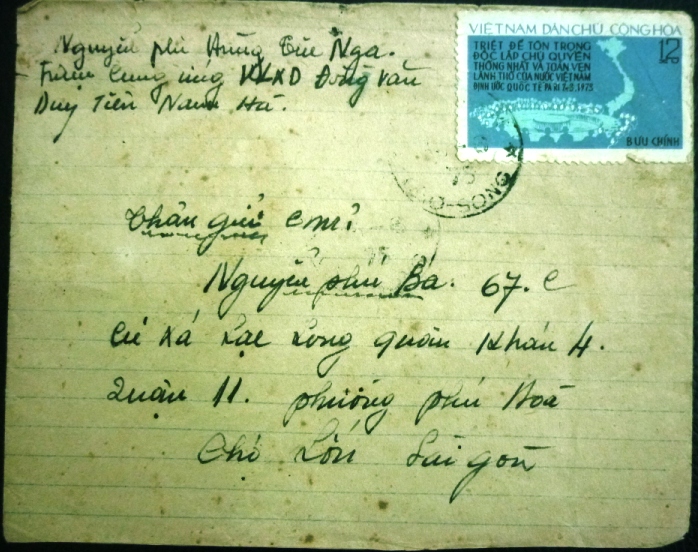 Nguyễn phú Hùng Tue Nga.
Trạm Cung ứng VLXD Đồng Văn
Duy Tiên Nam Hà.
VIỆT NAM DÂN CHỦ CỘNG HÒA
TRIỆT ĐỂ TÔN TRỌNG
ĐỘC LẬP CHỦ QUYỀN
THỐNG NHẤT VÀ TOÀN VẸN
LÃNH THỔ CỦA NƯỚC VIỆT NAM
ĐỊNH ƯỚC QUỐC TẾ PARI 2-3-1973
12 xu
BƯU CHÍNH
75
Thân gửi
Nguyễn phú Bá. 67. C
Cư Xá Lạc Long quân Khán 4.
Quận 11. phường phú Hoà
Chợ Lớn Sài gòn